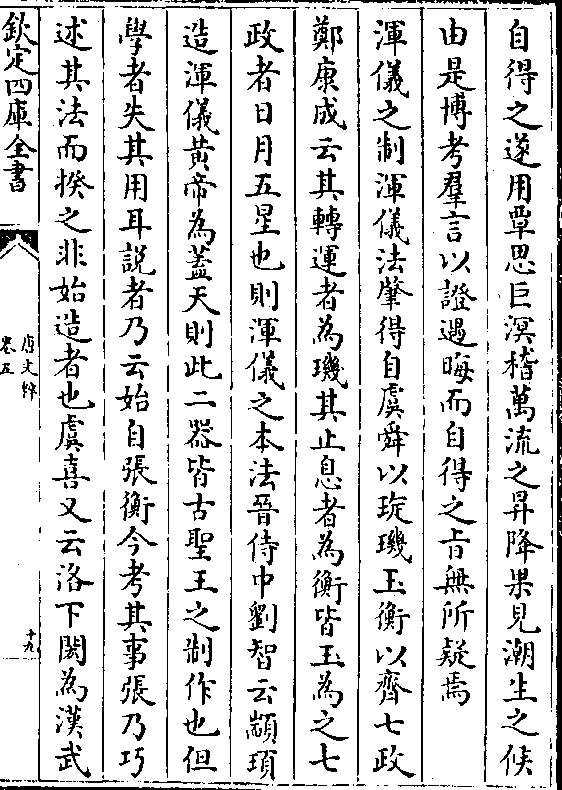 自得之遂用覃思巨溟稽萬流之昇降果見潮生之候
由是博考羣言以證遇晦而自得之旨無所疑焉
渾儀之制渾儀法肇得自虞舜以琁璣玉衡以齊七政
鄭康成云其轉運者為璣其止息者為衡皆玉為之七
政者日月五星也則渾儀之本法晉侍中劉智云顓頊
造渾儀黃帝為蓋天則此二器皆古聖王之制作也但
學者失其用耳説者乃云始自張衡今考其事張乃巧
述其法而揆之非始造者也虞喜又云洛下閎為漢武
欽定四庫全書
唐文粹
卷五
十九